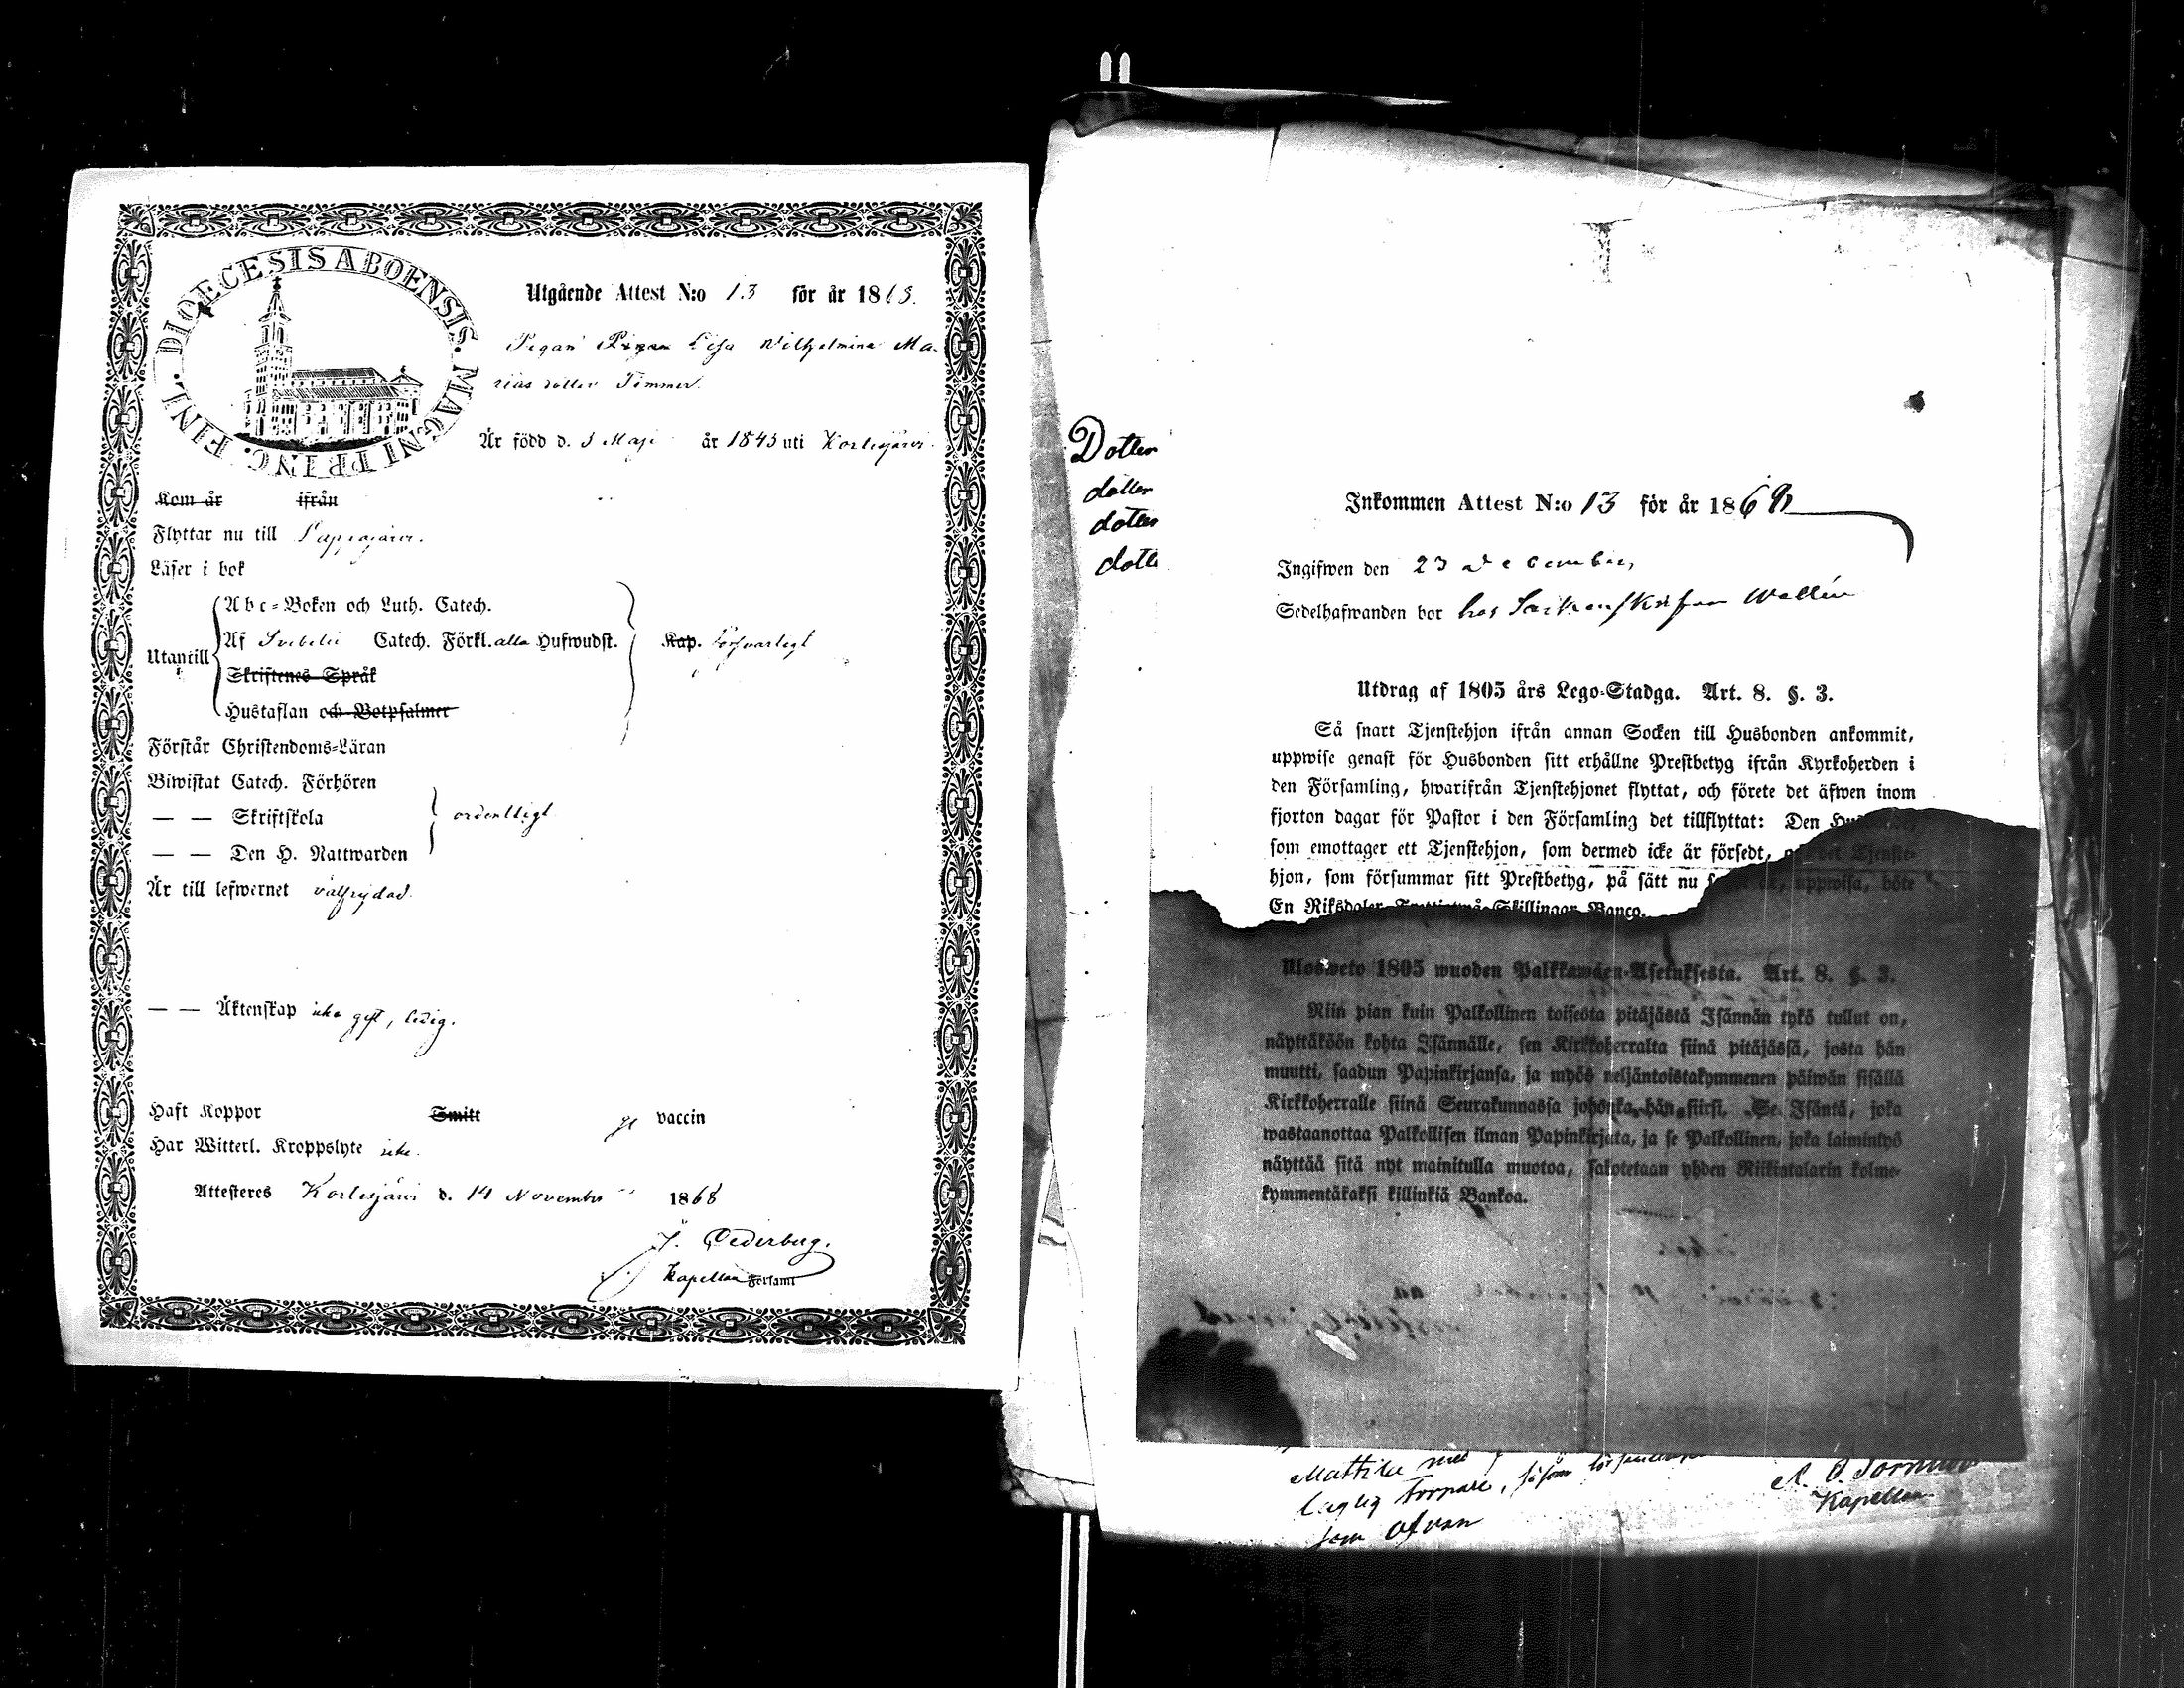 DIOECESIS ABOENSIS. MAGNI PRINC. FINL.
Utgående Attest N:o 13 för år 1868.
Pigan Pigan Lisa Wilhelmina Ma-
rias dotter Timmer.
Är född d. 3 Maji år 1843 uti Kortesjärvi.
Kom år ifrån
Flyttar nu till Lappajärvi.
Läser i bok
Utantill
Abc-Boken och Luth. Catech.
Af Svebelii Catech. Förkl. alla Hufwudst. Kap. försvarligt
Skriftenes Språk
Hustaflan och Botpsalmer
Förstår Christendoms-Läran
Biwistat Catech. Förhören
— — Skriftskola ordentligt
— — Den H. Nattwarden
Är till lefwernet välfrejdad.
— — Äktenskap icke gift, ledig.
Haft Koppor Smitt vaccin
Har Witterl. Kroppslyte icke.
Attesteres Kortesjärvi d. 14 November 1868
J. Cederberg.
Kapellan Församl
Dotter
dotter
dotter
dotte
Inkommen Attest N:o 13 för år 1869
Ingifwen den 23 December
Sedelhafwanden bor hos Wallén
Utdrag af 1805 års Lego-Stadga. Art. 8. §. 3.
Så snart Tjenstehjon ifrån annan Socken till Husbonden ankommit,
uppwise genast för Husbonden sitt erhållne Prestbetyg ifrån Kyrkoherden i
den Församling, hwarifrån Tjenstehjonet flyttat, och förete det äfwen inom
fjorton dagar för Pastor i den Församling det tillflyttat: Den
som emottager ett Tjenstehjon, som dermed icke är försedt, Tjenste-
hjon, som försummar sitt Prestbetyg, på sätt nu uppwisa, böte
En Riksdaler Skillingar Banco.
Ulosweto 1805 wuoden Palkkawäen-Asetuksesta. Art. 8. §. 3.
Niin pian kuin Palkollinen toisesta pitäjästä Isännän tykö tullut on,
näyttäköön kohta Isännälle, sen Kirkkoherralta siinä pitäjässä, josta hän
muutti, saadun Papinkirjansa, ja myös neljäntoistakymmenen päiwän sisällä
Kirkkoherralle siinä Seurakunnassa johonka hän siirsi. Se Isäntä, joka
wastaanottaa Palkollisen ilman Papinkirjata, ja se Palkollinen, joka laiminlyö
näyttää sitä nyt mainitulla muotoa, sakotetaan yhden Riikintalarin kolme-
kymmentäkaksi killinkiä Bankoa.
Mattila med
laglig torpare, såsom
som ofvan
Kapellan